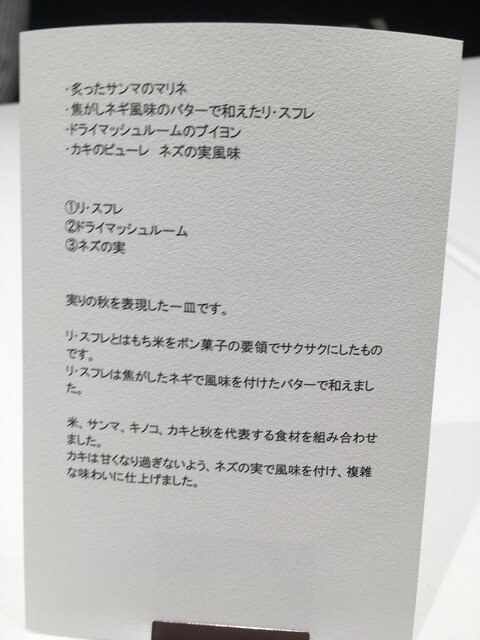 ・炙ったサンマのマリネ
・焦がしネギ風味のバターで和えたリ・スフレ
・ドライマッシュルームのブイヨン
・カキのピューレ　ネズの実風味
①リ・スフレ
②ドライマッシュルーム
③ネズの実
実りの秋を表現した一皿です。
リ・スフレとはもち米をポン菓子の要領でサクサクにしたもの
です。
リ・スフレは焦がしたネギで風味を付けたバターで和えまし
た。
米、サンマ、キノコ、カキと秋を代表する食材を組み合わせ
ました。
カキは甘くなり過ぎないよう、ネズの実で風味を付け、複雑
な味わいに仕上げました。